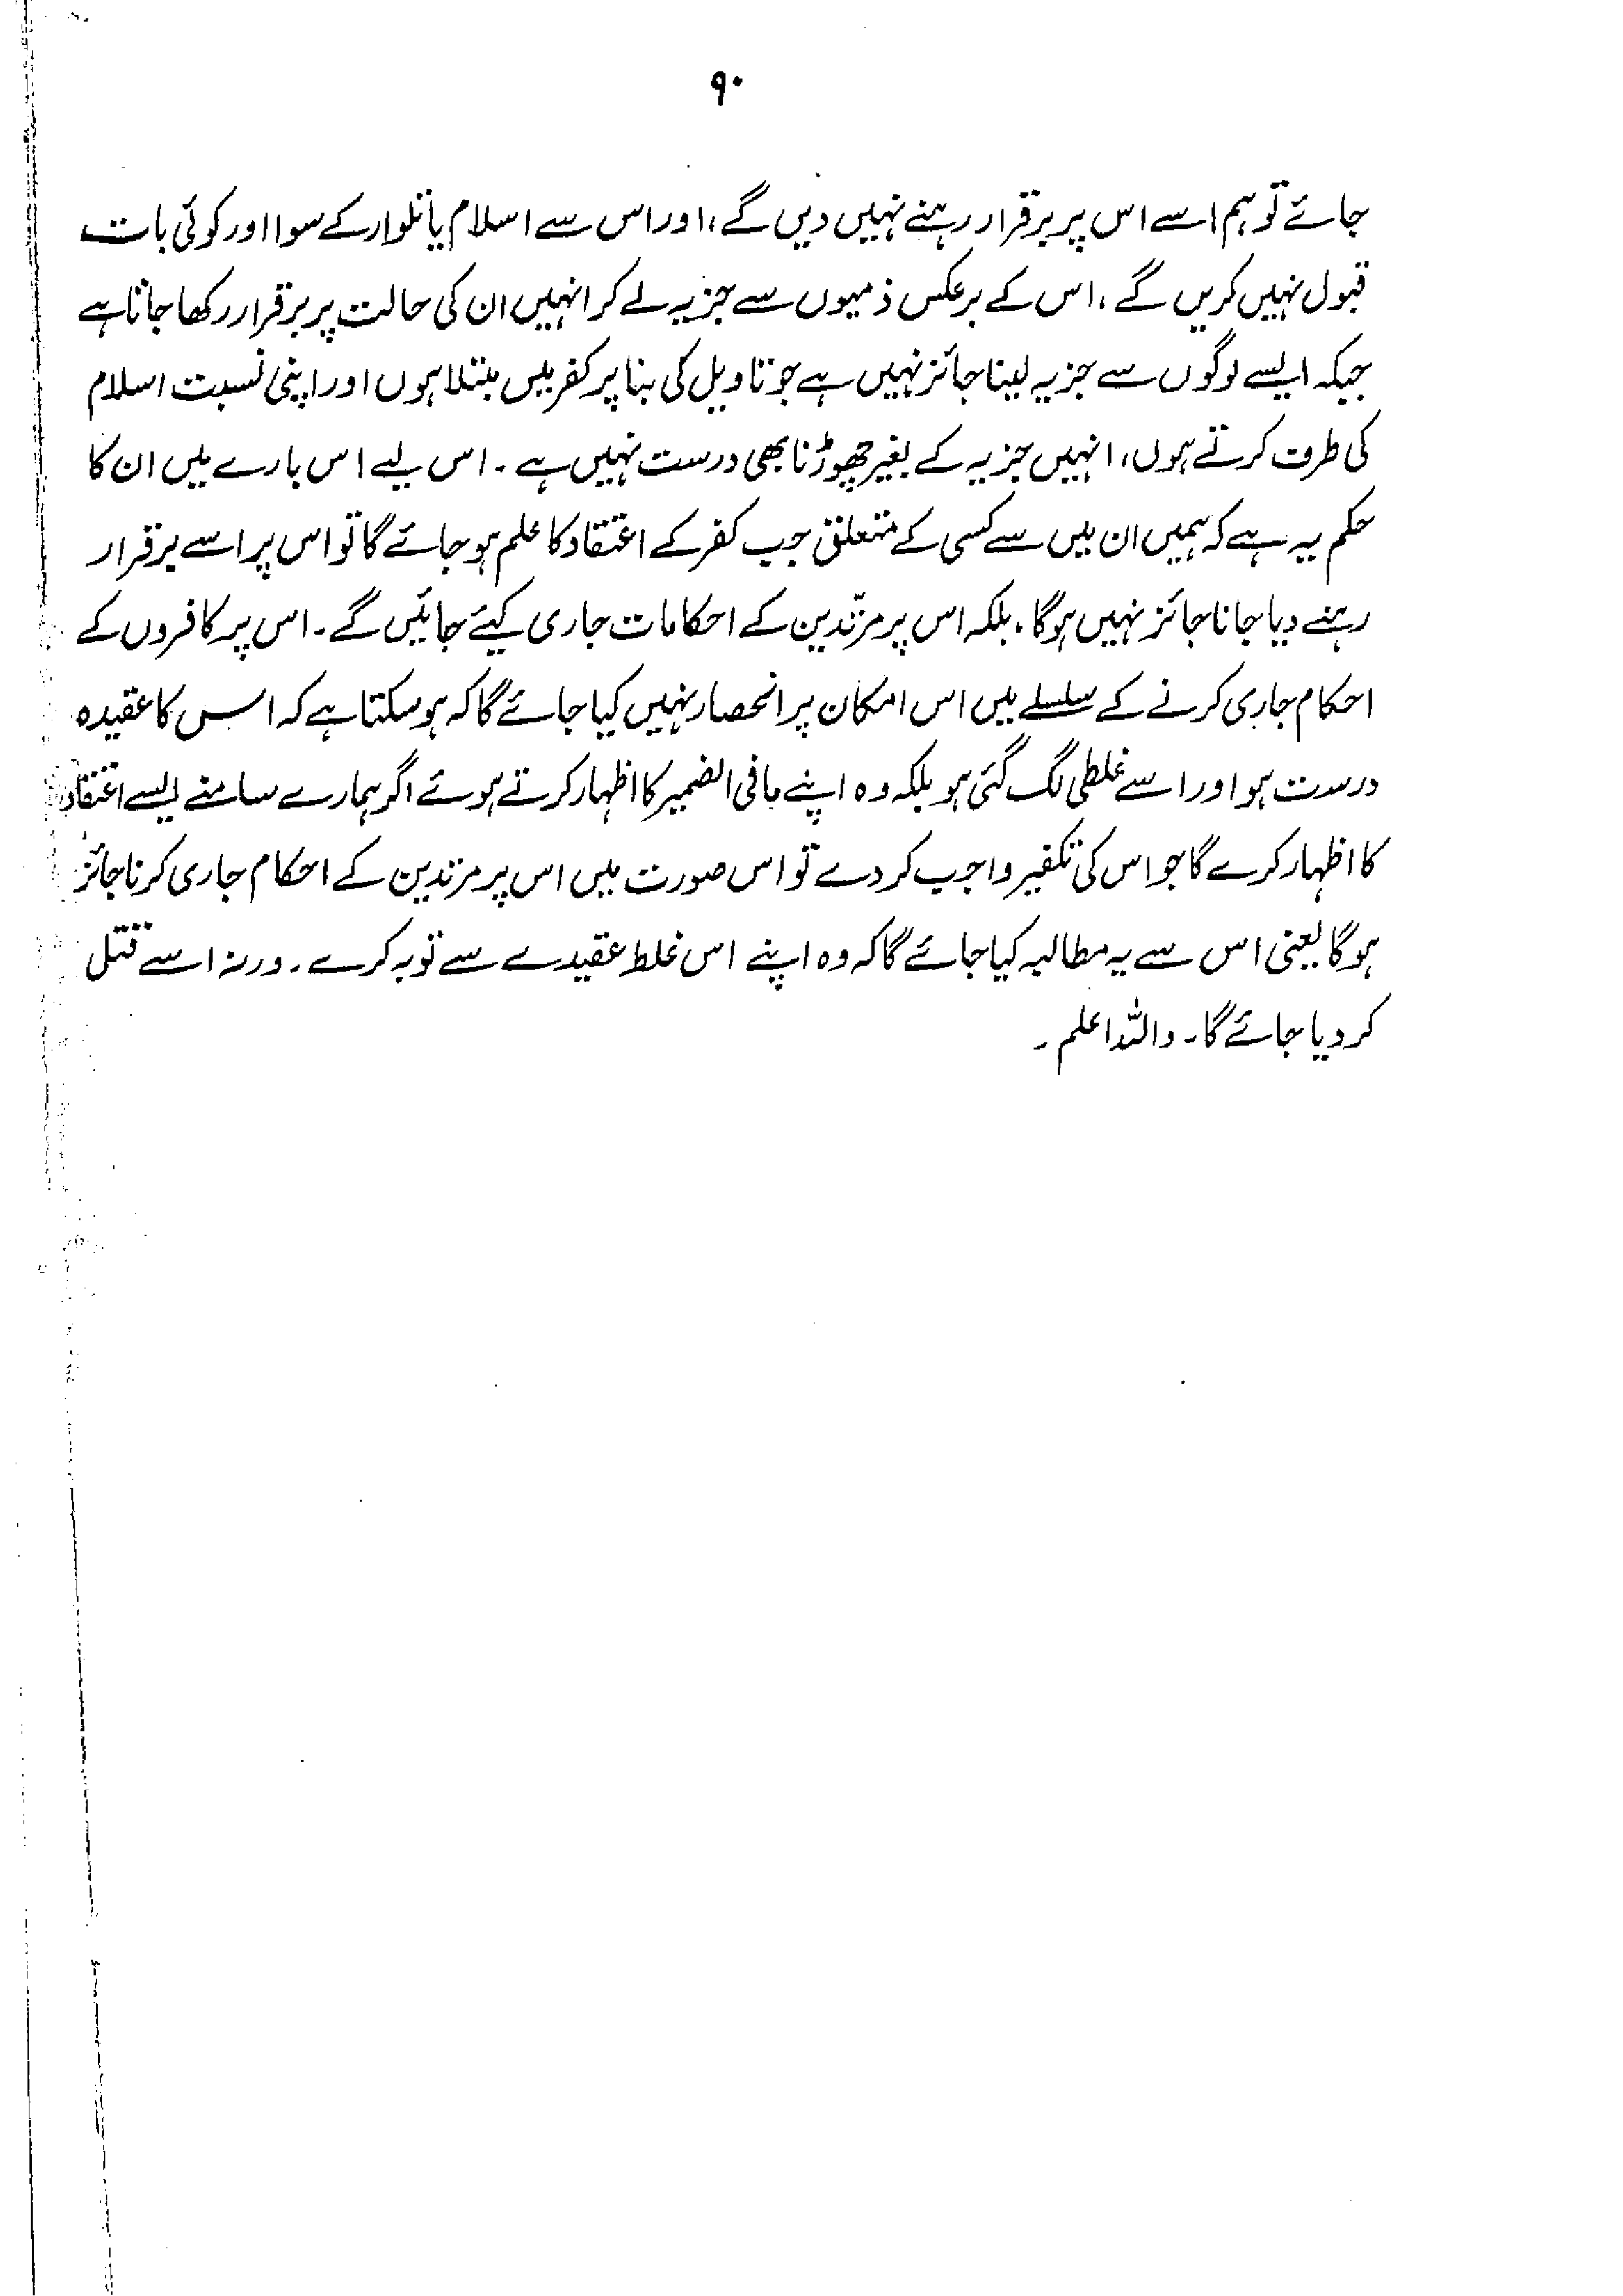 ۹۰
جائے تو ہم اسے اس پر برقرار رہنے نہیں دیں گے، اور اس سے اسلام یا تلوار کے سوا اور کوئی بات
قبول نہیں کریں گے، اس کے برعکس ذمیوں سے جزیہ لے کر انہیں ان کی حالت پر برقرار رکھا جاتا ہے
جبکہ ایسے لوگوں سے جزیہ لینا جائز نہیں ہے جو تاویل کی بنا پر کفر میں مبتلا ہوں اور اپنی نسبت اسلام
کی طرف کرتے ہوں، انہیں جزیہ کے بغیر چھوڑنا بھی درست نہیں ہے۔ اس لیے اس بارے میں ان کا
حکم یہ ہے کہ ہمیں ان میں سے کسی کے متعلق جب کفر کے اعتقاد کا علم ہو جائے گا تو اس پر اسے برقرار
رہنے دیا جانا جائز نہیں ہوگا، بلکہ اس پر مرتدین کے احکامات جاری کیئے جائیں گے۔ اس پر کافروں کے
احکام جاری کرنے کے سلسلے میں اس امکان پر انحصار نہیں کیا جائے گا کہ ہو سکتا ہے کہ اس کا عقیدہ
درست ہو اور اسے غلطی لگ گئی ہو بلکہ وہ اپنے مافی الضمیر کا اظہار کرتے ہوئے اگر ہمارے سامنے ایسے اعتقاد
کا اظہار کرے گا جو اس کی تکفیر واجب کر دے تو اس صورت میں اس پر مرتدین کے احکام جاری کرنا جائز
ہو گا یعنی اس سے یہ مطالبہ کیا جائے گا کہ وہ اپنے اس غلط عقیدے سے توبہ کرے۔ ورنہ اسے قتل
کر دیا جائے گا۔ واللہ اعلم۔